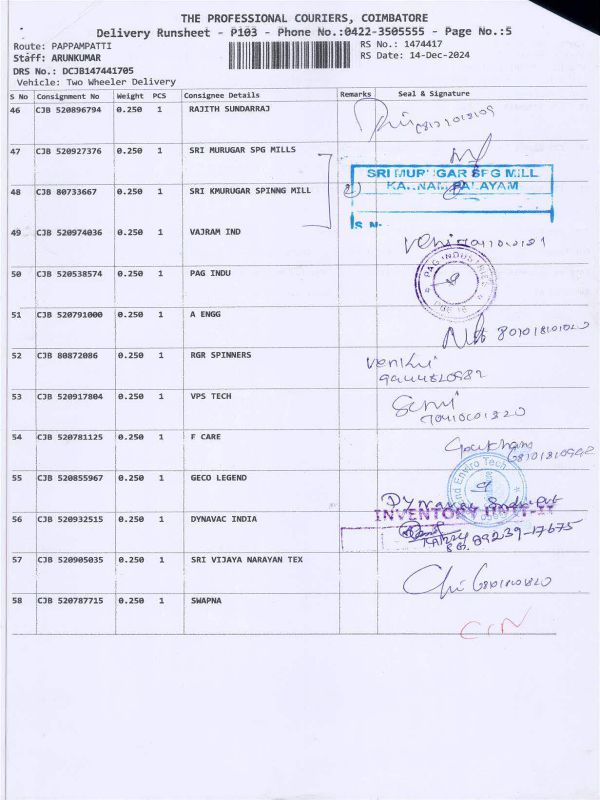 THE PROFESSIONAL COURIERS, COIMBATORE
Delivery Runsheet - P103 - Phone No.:0422-3505555 - Page No.:5
Route: PAPPAMPATTI
RS No.: 1474417
Staff: ARUNKUMAR
RS Date: 14-Dec-2024
DRS No.: DCJB147441705
Vehicle: Two Wheeler Delivery
S No Consignment No Weight PCS Consignee Details Remarks Seal & Signature
46 CJB 520896794 0.250 1 RAJITH SUNDARRAJ
47 CJB 520927376 0.250 1 SRI MURUGAR SPG MILLS
SRI MUR GAR SPG MILL
48 CJB 80733667 0.250 1 SRI KMURUGAR SPINNG MILL
KA NAM PALAYAM
S. N
49 CJB 520974036 0.250 1 VAJRAM IND
50 CJB 520538574 0.250 1 PAG INDU
PAG INDUSTRIES
51 CJB 520791000 0.250 1 A ENGG
52 CJB 80872086 0.250 1 RGR SPINNERS
53 CJB 520917804 0.250 1 VPS TECH
54 CJB 520781125 0.250 1 F CARE
55 CJB 520855967 0.250 1 GECO LEGEND
Enviro Tech
INVENTORY UNIT-II
56 CJB 520932515 0.250 1 DYNAVAC INDIA
89239-17675
57 CJB 520905035 0.250 1 SRI VIJAYA NARAYAN TEX
58 CJB 520787715 0.250 1 SWAPNA